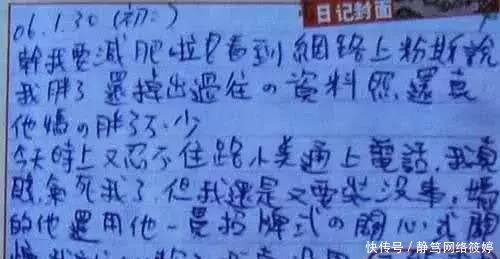 06.1.30 (初二)
日记封面
幹我要減肥啦 看到網路上粉斯說
我胖了 還捧出過往の資料照 還真
他媽の胖了不少
今天晚上又忍不住 小美通上電話,我真
氣死我了 但我還是又要裝沒事,媽
的他還用他一貫招牌式の關心式
快传号 / 静笃网络筱婷